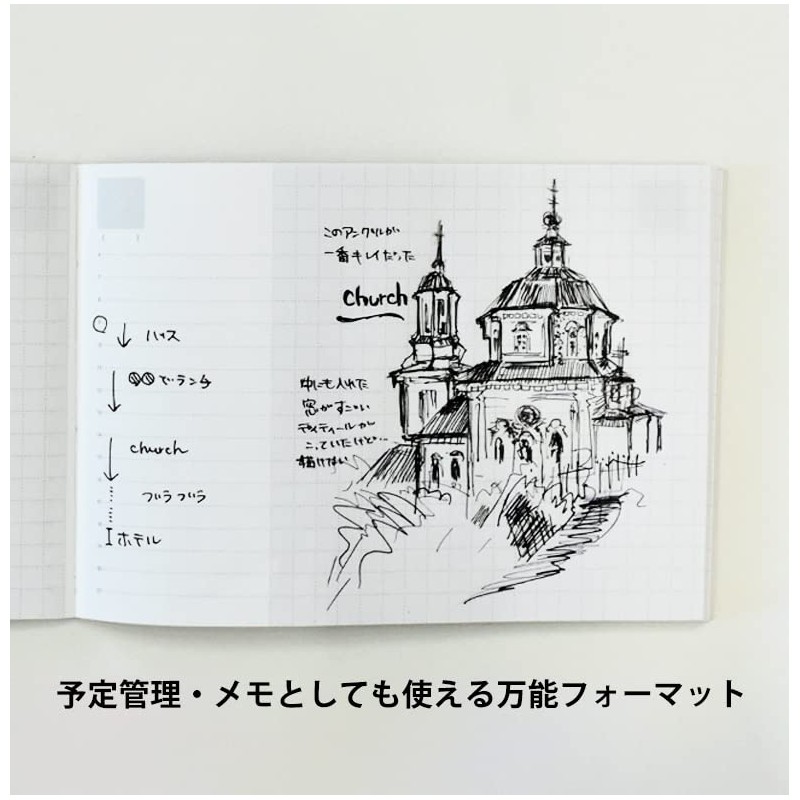 バス
でランチ
church
ブラブラ
ホテル
このアングルが
一番キレイだった
church
中にも入れた
窓がすごい
ディティールが
こっていたけど…
描けない
予定管理・メモとしても使える万能フォーマット